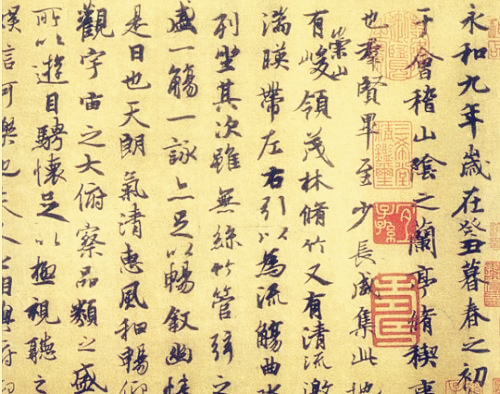 永和九年歲在癸丑暮春之初
于會稽山陰之蘭亭脩稧事
也群賢畢至少長咸集此地
有崇山峻領茂林脩竹又有清流激
湍暎帶左右引以為流觴曲水
列坐其次雖無絲竹管弦之
盛一觴一詠亦足以暢敘幽情
是日也天朗氣清惠風和暢仰
觀宇宙之大俯察品類之盛
所以遊目騁懷足以極視聽之
娛信可樂也夫人之相與俯仰